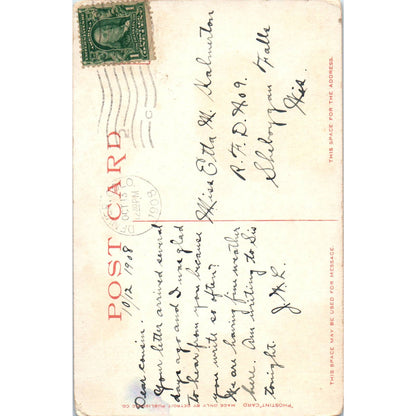 POST CARD
10/12 1908
Dear cousin.
Your letter arrived several
days ago and I was glad
to hear from you because
you write so often?
We are having fine weather
here. Am writing to Sis
tonight.
J. H. L.
Miss Etta M. Kalmerton
R. F. D. No 9.
Sheboygan Falls
Wis.
OCT 13
1908
THIS SPACE MAY BE USED FOR MESSAGE.
THIS SPACE FOR THE ADDRESS.
"PHOSTINT" CARD MADE ONLY BY DETROIT PUBLISHING CO.